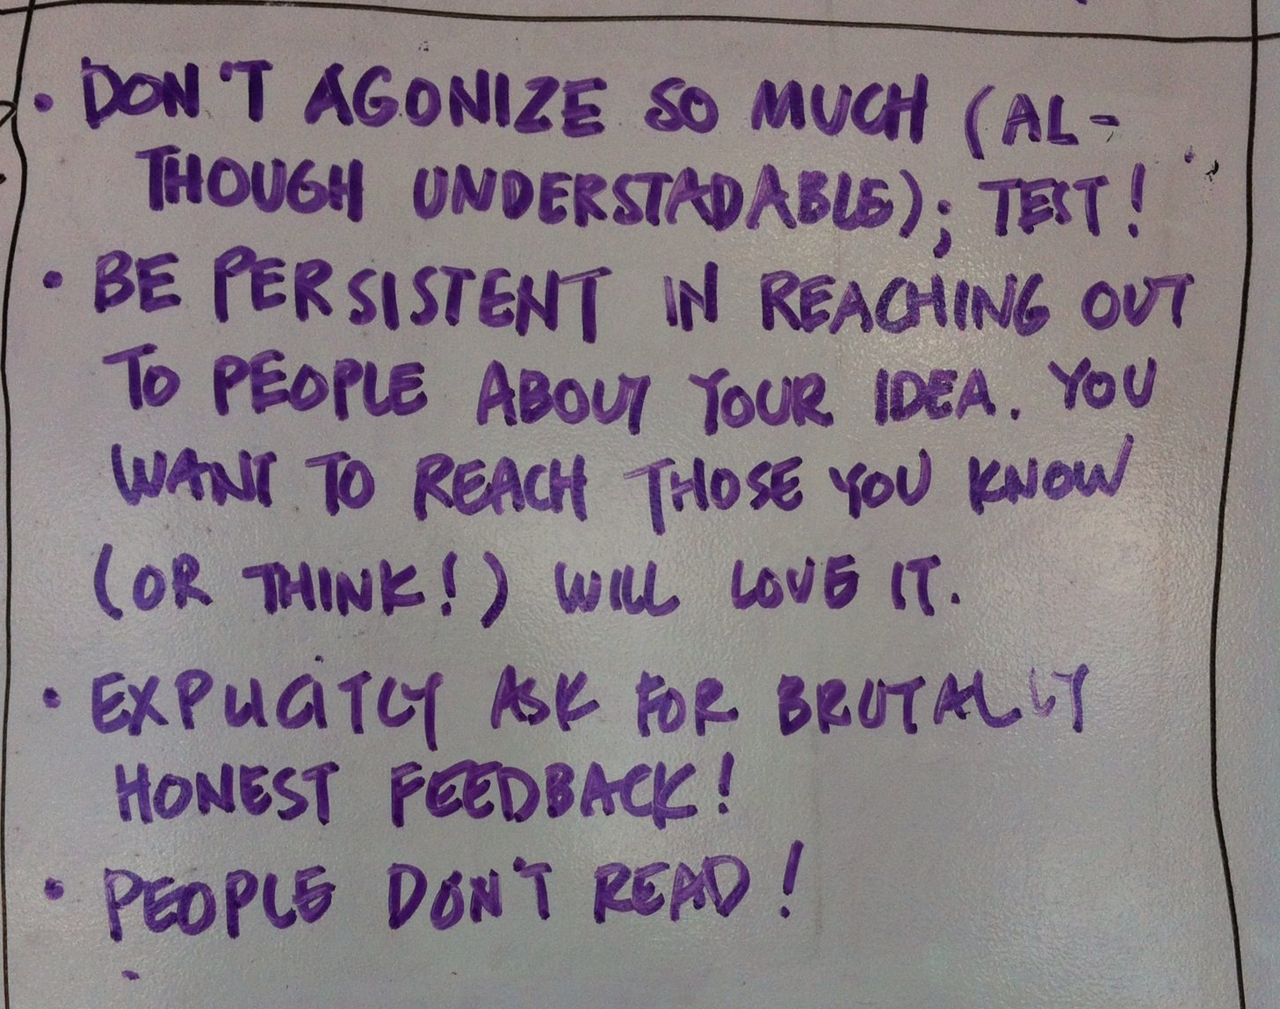 • DON'T AGONIZE SO MUCH (AL-
THOUGH UNDERSTADABLE); TEST!
• BE PERSISTENT IN REACHING OUT
TO PEOPLE ABOUT YOUR IDEA. YOU
WANT TO REACH THOSE YOU KNOW
(OR THINK!) WILL LOVE IT.
• EXPLICITLY ASK FOR BRUTALLY
HONEST FEEDBACK!
• PEOPLE DON'T READ!